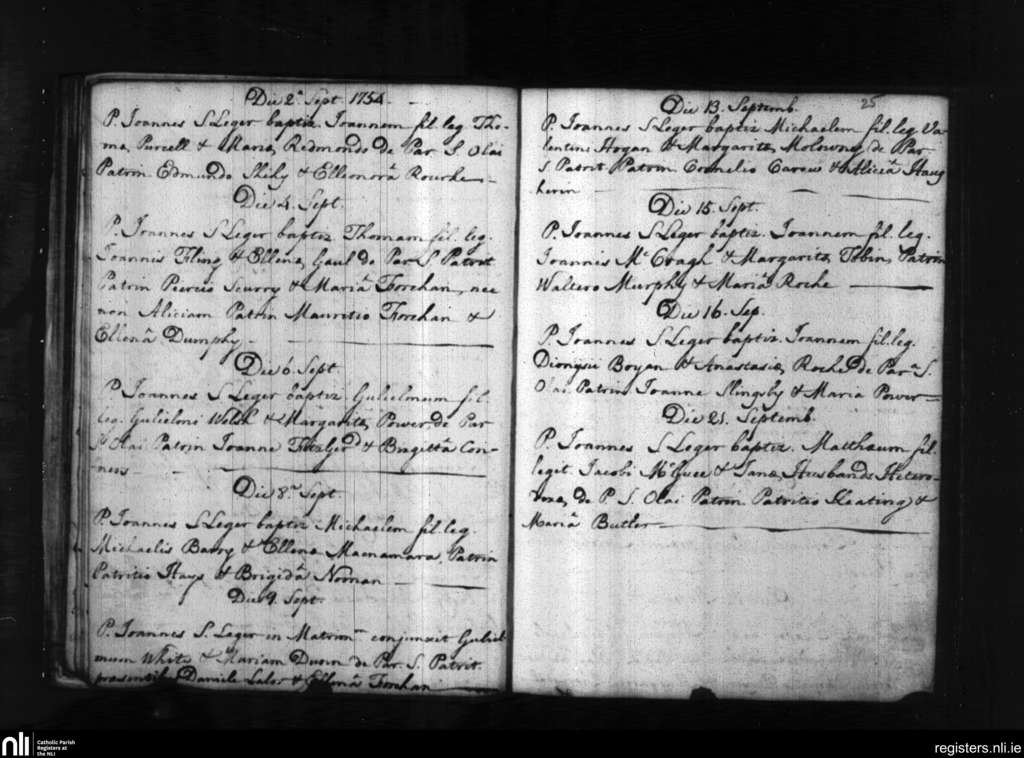 Die 2.ª Sept. 1754
P. Joannes S.Leger baptiz. Joannem fil. leg. Tho-
ma Purcell & Maria Redmonds de Par. S. Olai
Patrin Edmundo Shily & Elleonorâ Rourke
Die 4. Sept.
P. Joannes S.Leger baptiz. Thomam fil. leg.
Joannis Fling & Ellena Gaul de Par. S. Patrit
Patrin Piercio Scurry & Mariâ Forehan, nec
non Aliciam Patrin Mauritio Forehan &
Ellenâ Dumphy
Die 6. Sept.
P. Joannes S.Leger baptiz. Gulielmum fil.
leg. Gulielmi Welsh & Margarita Power de Par
S. Olai Patrin Joanne FitzGerd & Brigittâ Con-
ners
Die 8.ª Sept.
P. Joannes S.Leger baptiz Michaelem fil. leg.
Michaelis Barry & Ellena Macnamara, Patrin
Patritio Hays & Brigidâ Noman
Die 9. Sept.
P. Joannes S. Leger in Matrim conjunxit Guliel
mum White & Mariam Dunn de Par. S. Patrit.
præsentib. Daniele Lalor & Ellenâ Forehan
25
Die 13. Septemb.
P. Joannes S.Leger baptiz Michaelem fil. leg. Va-
lentini Hogan & Margarita Molowny de Par
S. Patrit Patrin Cornelio Carew & Aliciâ Haug
herin
Die 15. Sept.
P. Joannes S.Leger baptiz. Joannem fil. leg.
Joannis McCragh & Margarita Tobin, Patrin
Waltero Murphy & Mariâ Roche
Die 16. Sep.
P. Joannes S.Leger baptiz. Joannem fil. leg.
Dionysii Boyan & Anastasia Roche de Par. S.
Olai Patrin Joanne Slingsby & Maria Power
Die 21. Septemb.
P. Joannes S.Leger baptiz. Matthaum fil.
legit. Jacobi McGuee & Jana Husbands Hetero-
doxa, de P. S. Olai Patrin Patritio Keating &
Mariâ Butler
nli Catholic Parish
Registers at
the NLI
registers.nli.ie